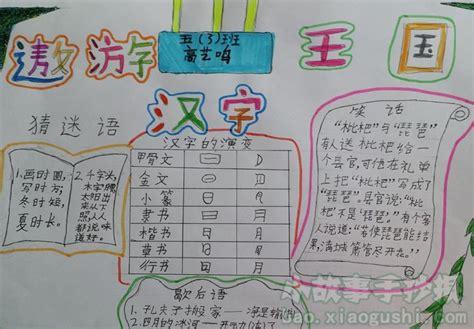 遨游字王国
五(3)班
高艺鸣
汉字
猜迷语
1.画时圆,
写时方,
冬时短,
夏时长。
2.千字头,
木字腰,
太阳出
来从下
照,人人
都说味
道好。
汉字的演变
甲骨文
金文
小篆 日 月
隶书 日 月
楷书 日 月
草书 日 月
行书 日 月
笑话
"枇杷"与"琵琶"
有人送枇杷给一
个县官,可他在礼单
上把"枇杷"写成了
"琵琶"。县官说:"枇
杷不是琵琶。"有个客
人说道:"若使琵琶能结
果,满城箫管尽开花。"
歇后语
1.孔夫子搬家 净是输
2.四月的冰河 开动
小故事手抄报
bao.xiaogushi.com